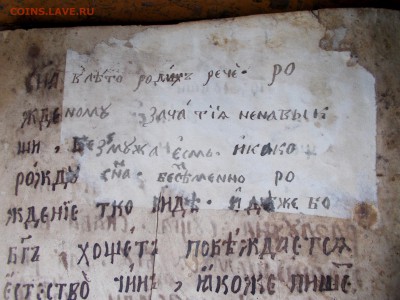 COINS.LAVE.RU
сн҃а влѣто родихъ рече· ро
жденому· зачатїѧ ненавыкъ
ши, безмужа єсмь· икако
рождꙋ сн҃а· безсѣменно ро
ждениє тко видѣ· идѣже бо
бг҃ъ хощетъ побѣждаетсѧ
єстество чинъ, ꙗкоже пише